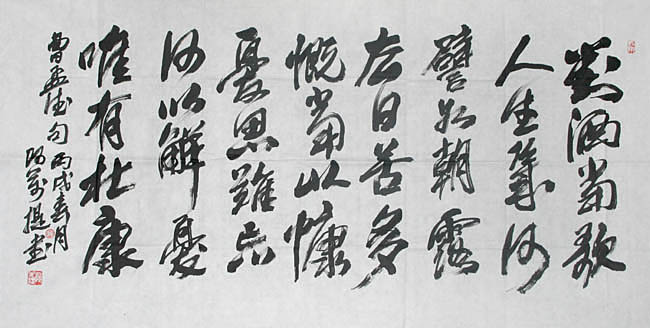 對酒當歌
人生幾何
譬如朝露
去日苦多
慨當以慷
憂思難忘
何以解憂
唯有杜康
曹孟德句丙戌春月